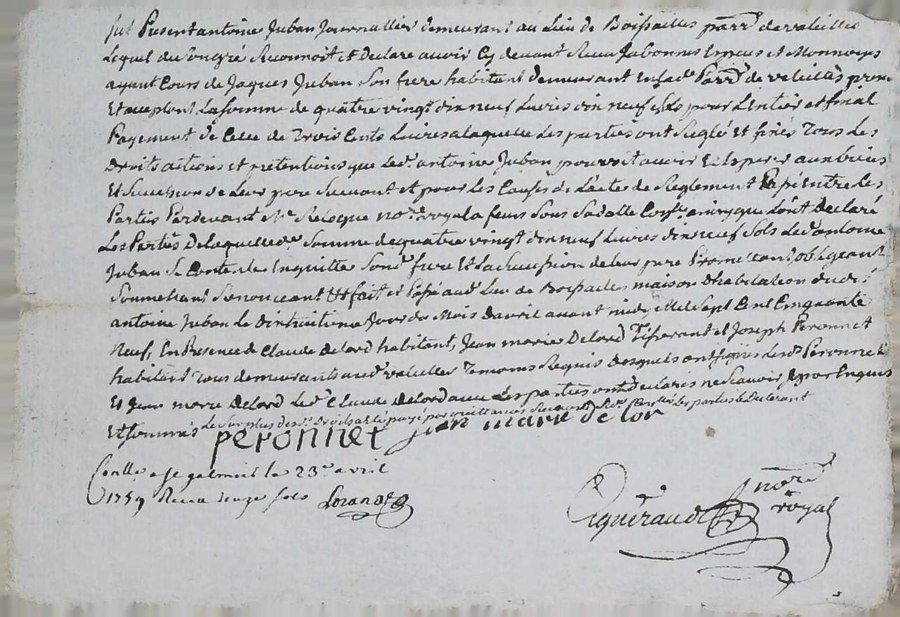 fut Present antoine Juban Journallier demeurant au Lieu de Boissailles parr.e de valeilles
Lequel du bon gré Reconnoit et Declare avoir Cy devant Receu En bonnes Especes et Monnoyes
ayant Cours de Jaques Juban Son frere habitant demeurant En lad.e Parr.e de valeilles
Et acceptant La somme de quatre vingt dix neuf Livres dix neuf sols pour L'entier et final
Payement de Celle de Trois Cents Livres a laquelle Les parties ont Reglé et fixés Tous Les
Droits actions et pretentions que Led.t antoine Juban pourroit avoir Et Esperer aux biens
Et Succession de Leur pere Suivant et pour Les Causes de L'acte de Reglement Passé Entre Les
Parties Pardevant M.e not.e royal a feurs Sous Sa datte ainsy que L'ont Declaré
Les Parties De laquelle d.e Somme de quatre vingt dix neuf Livres dix neuf Sols Led.t antoine
Juban Se Contente En quitte Sond.t frere Et La Succession de leur pere Promettant obligeant
Soumettant Renonceant fait et Passé aud.t Lieu de Boissailles maison D'habitation dud.t
antoine Juban Le dixhuitieme Jour du Mois d'avril avant midy Mil Sept Cent Cinquante
Neuf, En Presence de Claude delord habitant, Jean marie Delord Tisserant et Joseph Peronnet
habitant Tous demeurants aud.t valeilles Temoins Requis desquels ont signés Les d.ts Peronnet
Et Jean marie Delord Led.t Claude delord avec Les parties ont declarés ne Scavoir de par Enquis
Et sommés Le surplus des d.ts Droits a été payé par quittances les parties le Declarant
peronnet jean marie de lor
Conllé a st galmier le 23e avril
1759 Receu douze sols
nore
royal